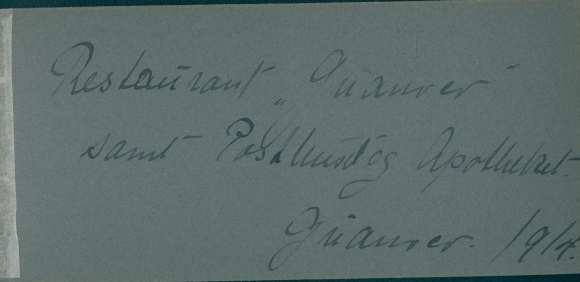 Restaurant „Güanver"
samt Posthus og Apotheket.
Güanver. 1914.